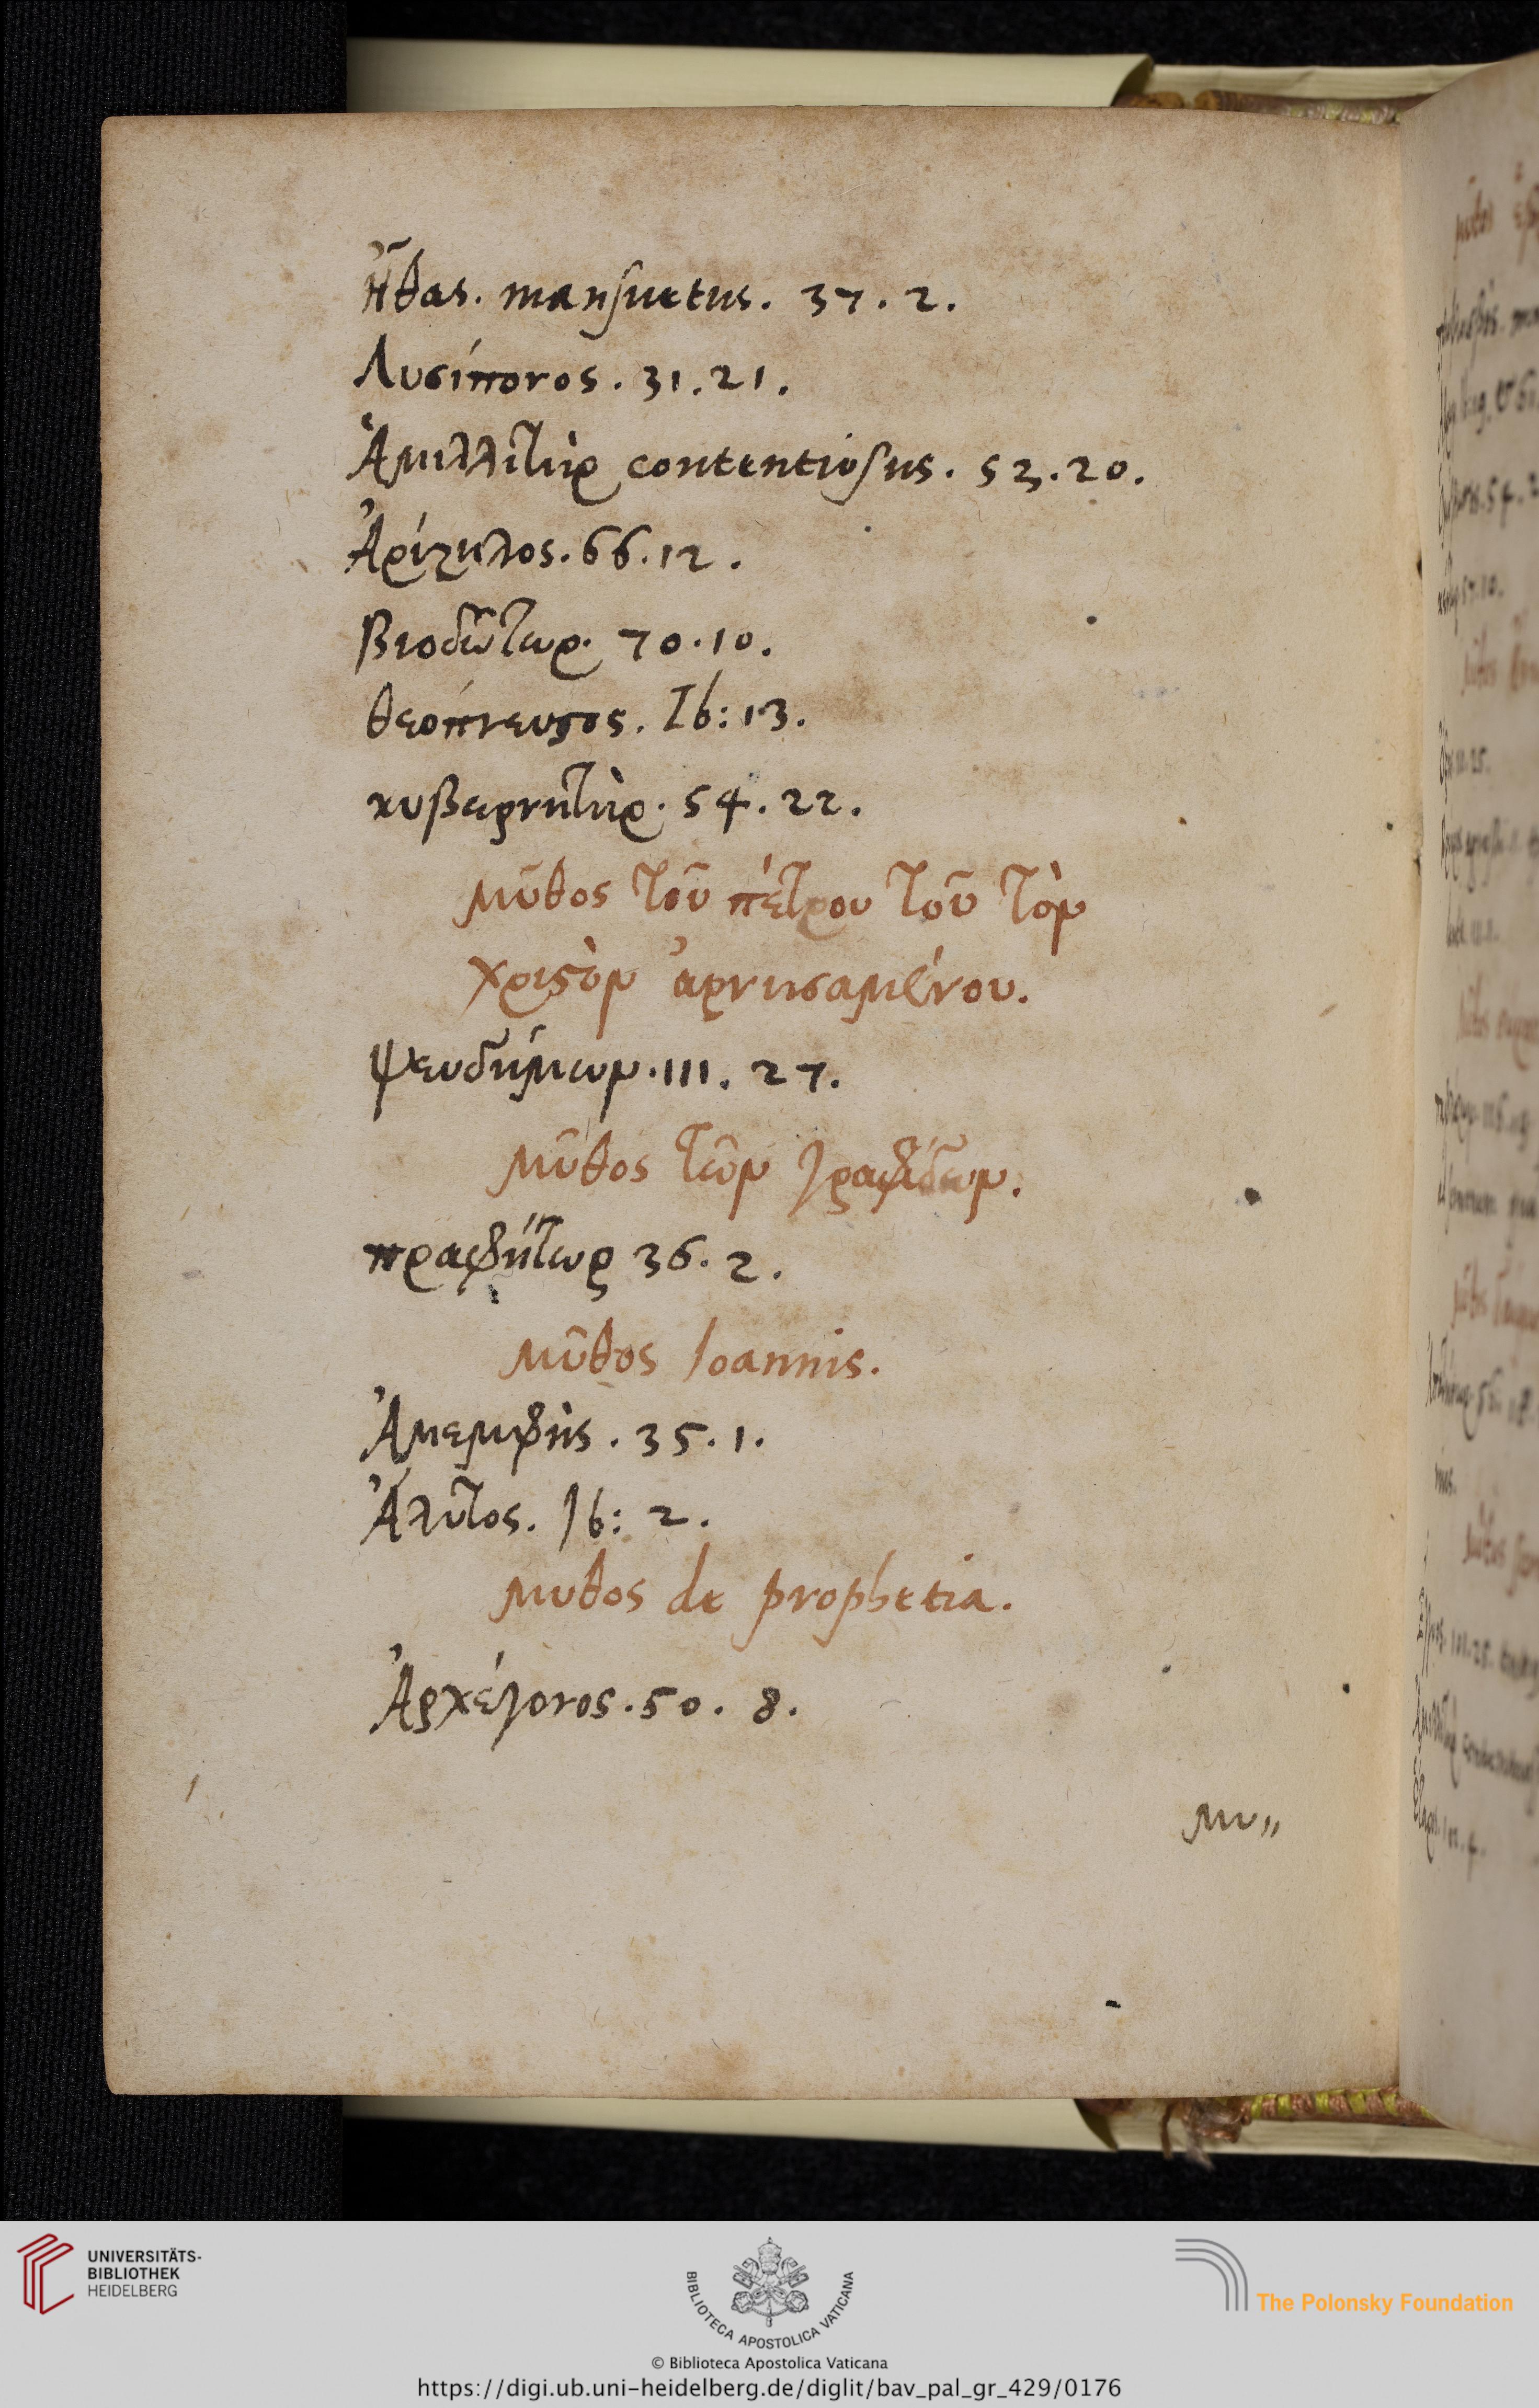 Ἦθας. mansuetus. 37. 2.
Λυσίπονος. 31. 21.
Ἁμιλλιτὴρ contentiosus. 53. 20.
Ἀρίζηλος. 66. 12.
Βιοδῶτωρ. 70. 10.
θεόπνευστος. Ib: 13.
κυβερνητὴρ. 54. 22.
μῦθος τοῦ πέτρου τοῦ τὸν
χριστὸν ἀρνησαμένου.
ψευδήμων. 111. 27.
μῦθος τῶν γραφίδων.
πραφήτωρ 36. 2.
μῦθος Ioannis.
Ἀμεμφὴς. 35. 1.
Ib: 2.
μυθος de prophetia.
Ἀρχέγονος. 50. 8.
μυ,,
UNIVERSITÄTS-
BIBLIOTHEK
HEIDELBERG
BIBLIOTECA APOSTOLICA VATICANA
The Polonsky Foundation
© Biblioteca Apostolica Vaticana
https://digi.ub.uni-heidelberg.de/diglit/bav_pal_gr_429/0176